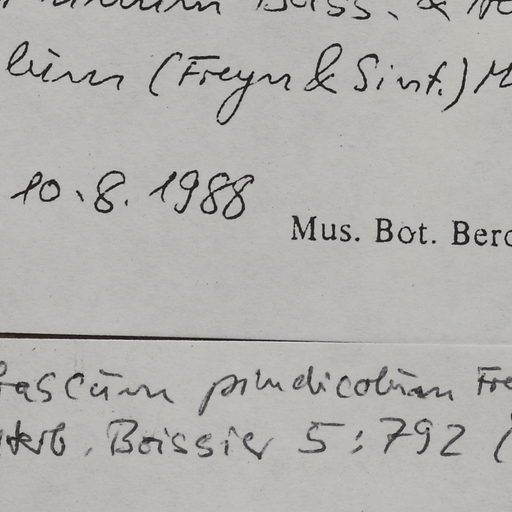 Boiss. &
(Freyn & Sint.) M
10.8.1988
Mus. Bot. Berc
bascum pindicolum Fre
Herb. Boissier 5:792 (